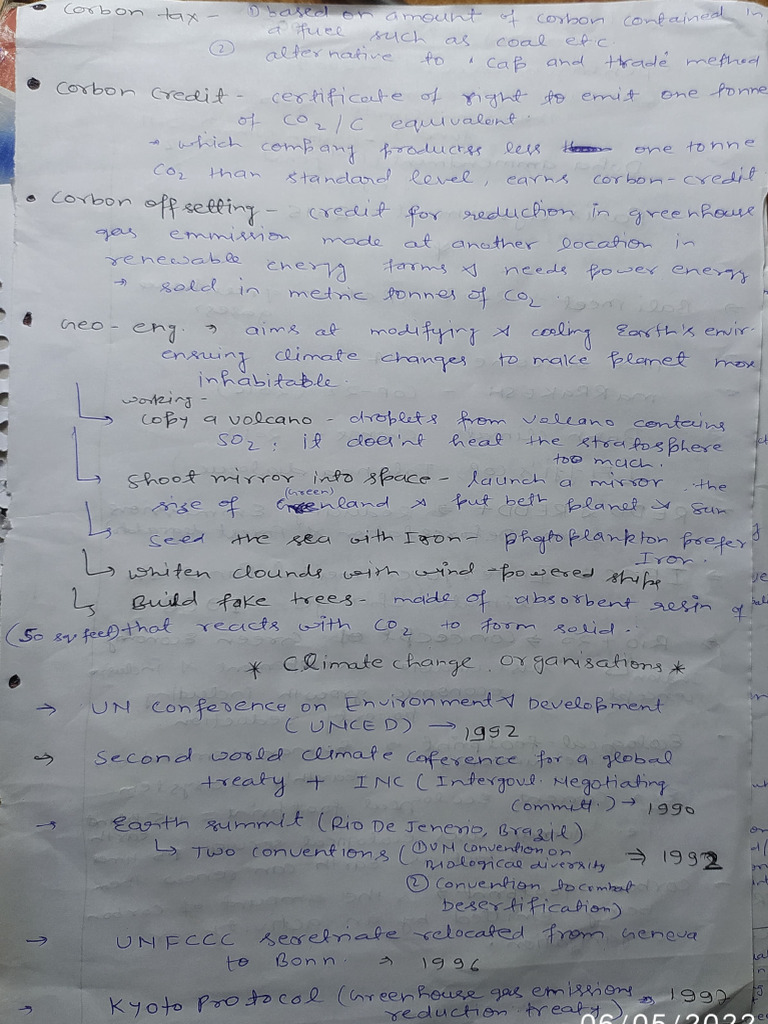 • Corbon tax - ① based on amount of corbon contained in
a fuel such as coal etc.
② alternative to 'cap and trade' method
• Corbon Credit - certificate of right to emit one tonne
of CO2/C equivalent.
→ which company products less one tonne
CO2 than standard level, earns corbon-credit
• Corbon offsetting - credit for reduction in greenhouse
gas emmission made at another location in
renewable energy farms & needs power energy
→ sold in metric tonnes of CO2.
• Geo-eng. → aims at modifying & cooling Earth's envir-
ensuing climate changes to make planet more
inhabitable.
working -
copy a volcano - droplets from volcano contains
SO2; it doesn't heat the stratosphere
too much.
Shoot mirror into space - launch a mirror the
(Green)
rise of land & put betn planet & sun
Seed the sea with Iron - phytoplankton prefer
Iron.
whiten clounds with wind-powered ships
Build fake trees - made of absorbent resin of
(50 sq feet) that reacts with CO2 to form solid.
* Climate change organisations *
→ UN conference on Environment & Development
(UNCED) → 1992
→ Second world climate coference for a global
treaty + INC (Intergovt. Negotiating
Committ.) → 1990
→ Earth summit (Rio De Jenerio, Brazil)
↳ Two conventions (① UN convention on
Biological diversity ⇒ 1992
② Convention to combat
Desertification)
→ UNFCCC secretriate relocated from Geneva
to Bonn. → 1996
→ Kyoto Protocol (Greenhouse gas emissions → 1997
reduction treaty)
06/05/2022